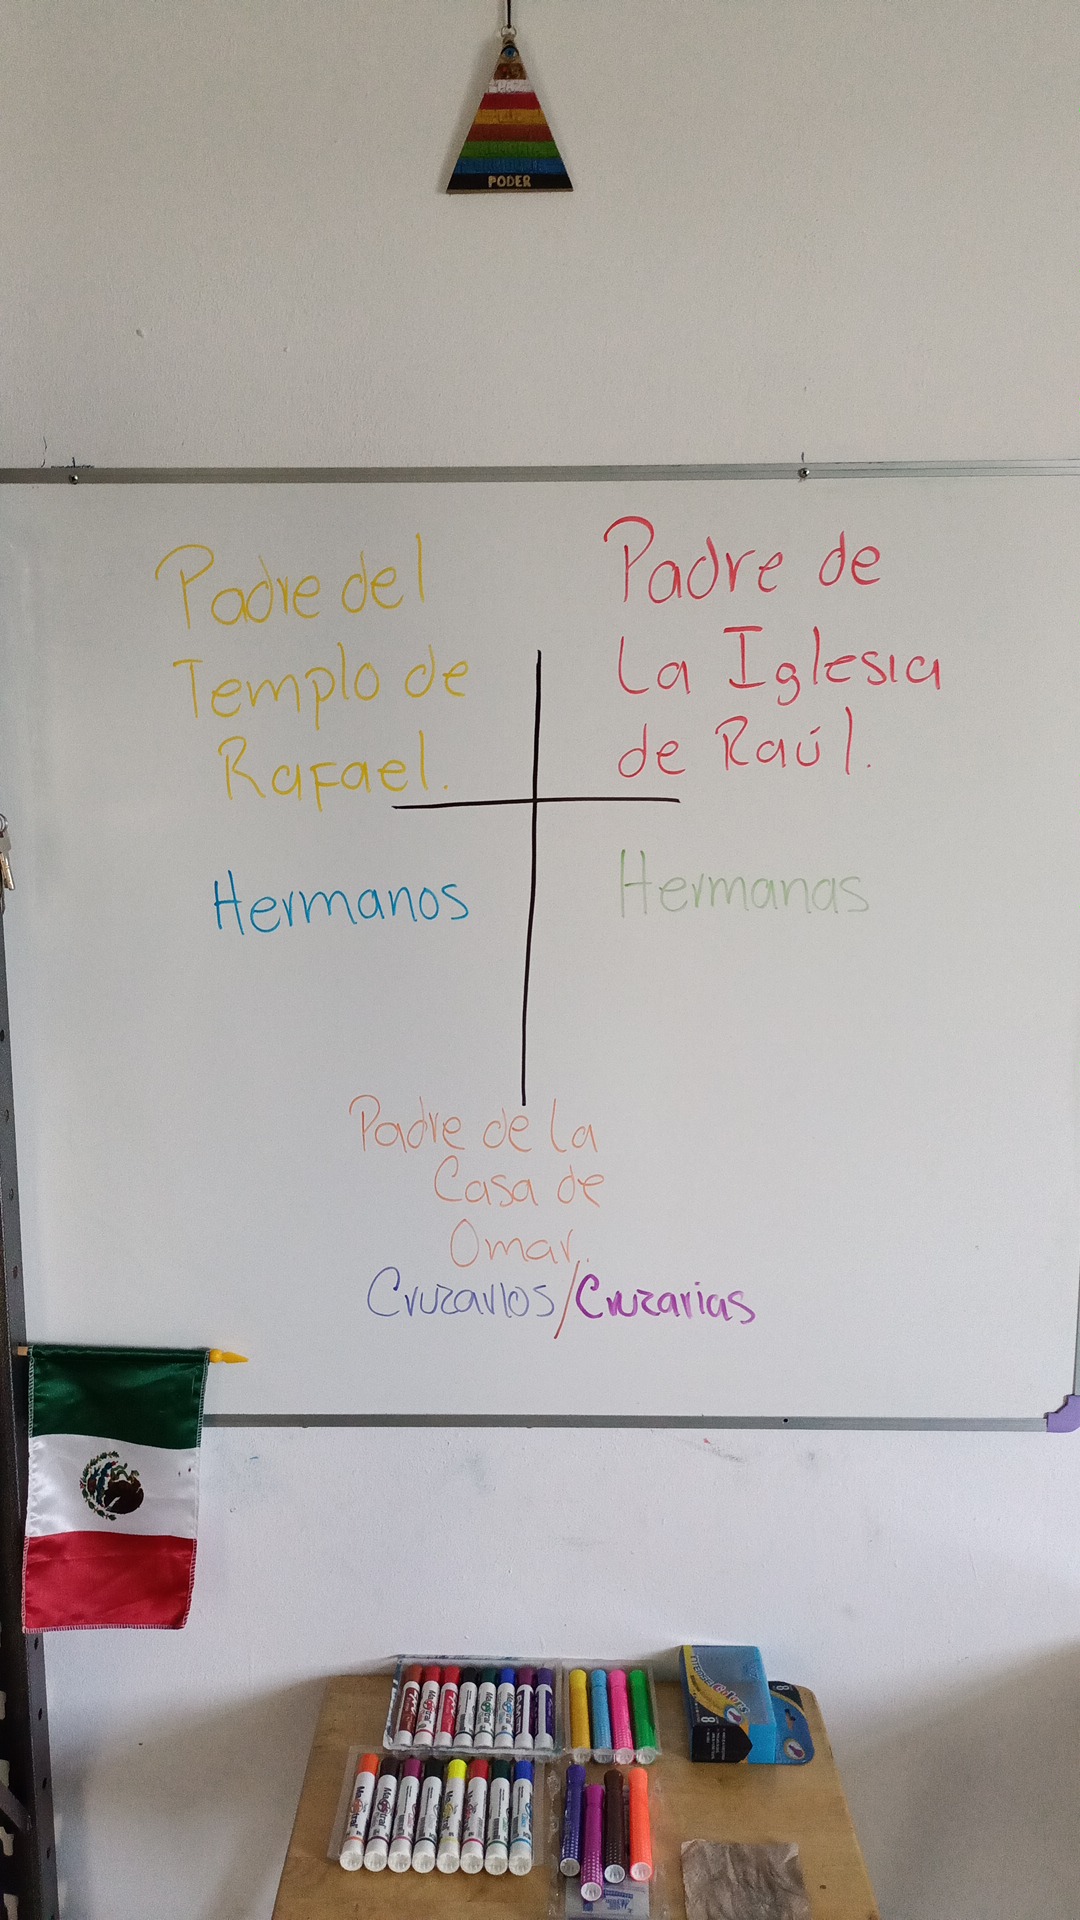 PODER
Padre del
Templo de
Rafael.
Padre de
La Iglesia
de Raúl.
Hermanos
Hermanas
Padre de la
Casa de
Omar.
Cruzarios/Cruzarias